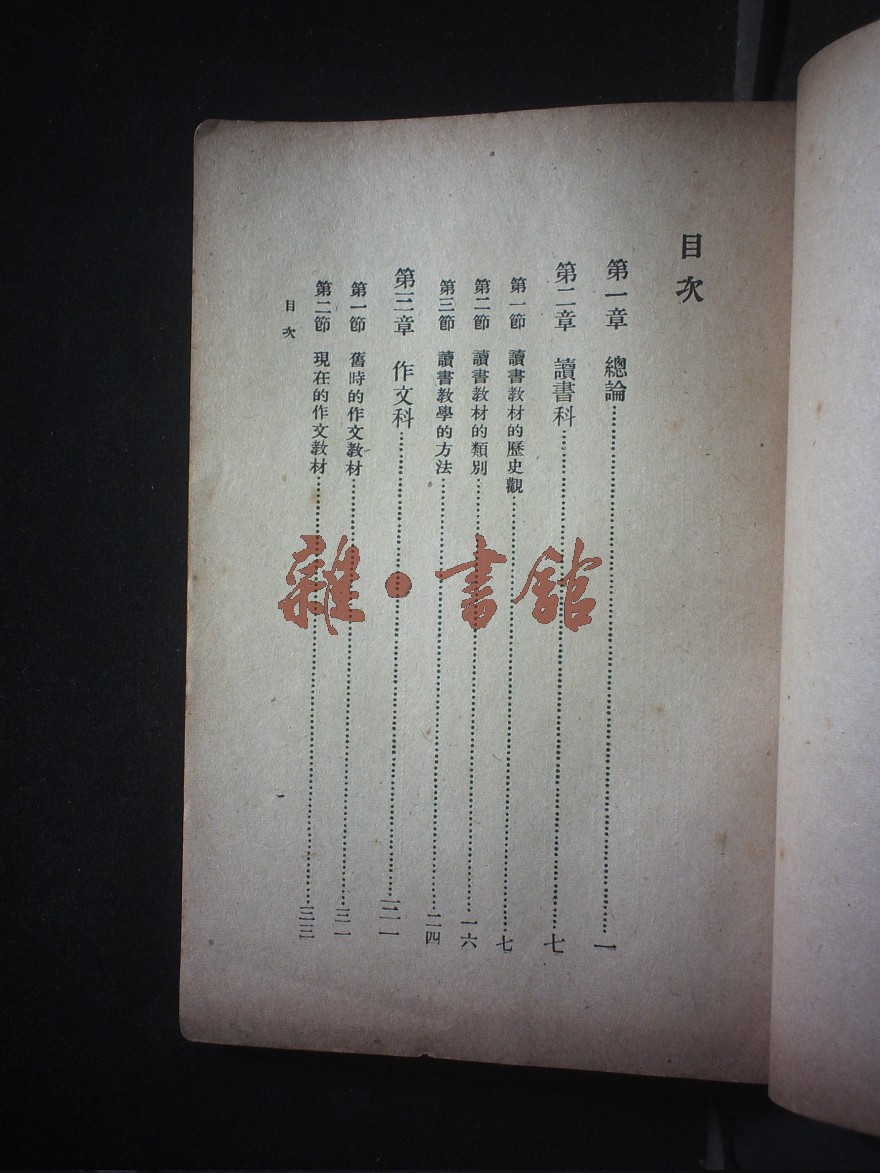 目次
第一章 總論……一
第二章 讀書科……七
第一節 讀書教材的歷史觀……七
第二節 讀書教材的類別……一六
第三節 讀書教學的方法……二四
第三章 作文科……三一
第一節 舊時的作文教材……三一
第二節 現在的作文教材……三三
目次
一
雜·書館